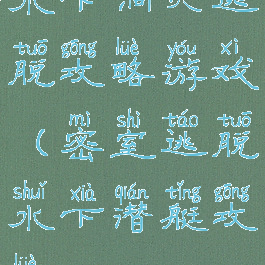 脱攻略游戏
tuō gōng lüè yóu xì
(密室逃脱
mì shì táo tuō
水下潜艇攻
shuǐ xià qián tǐng gōng
lüè